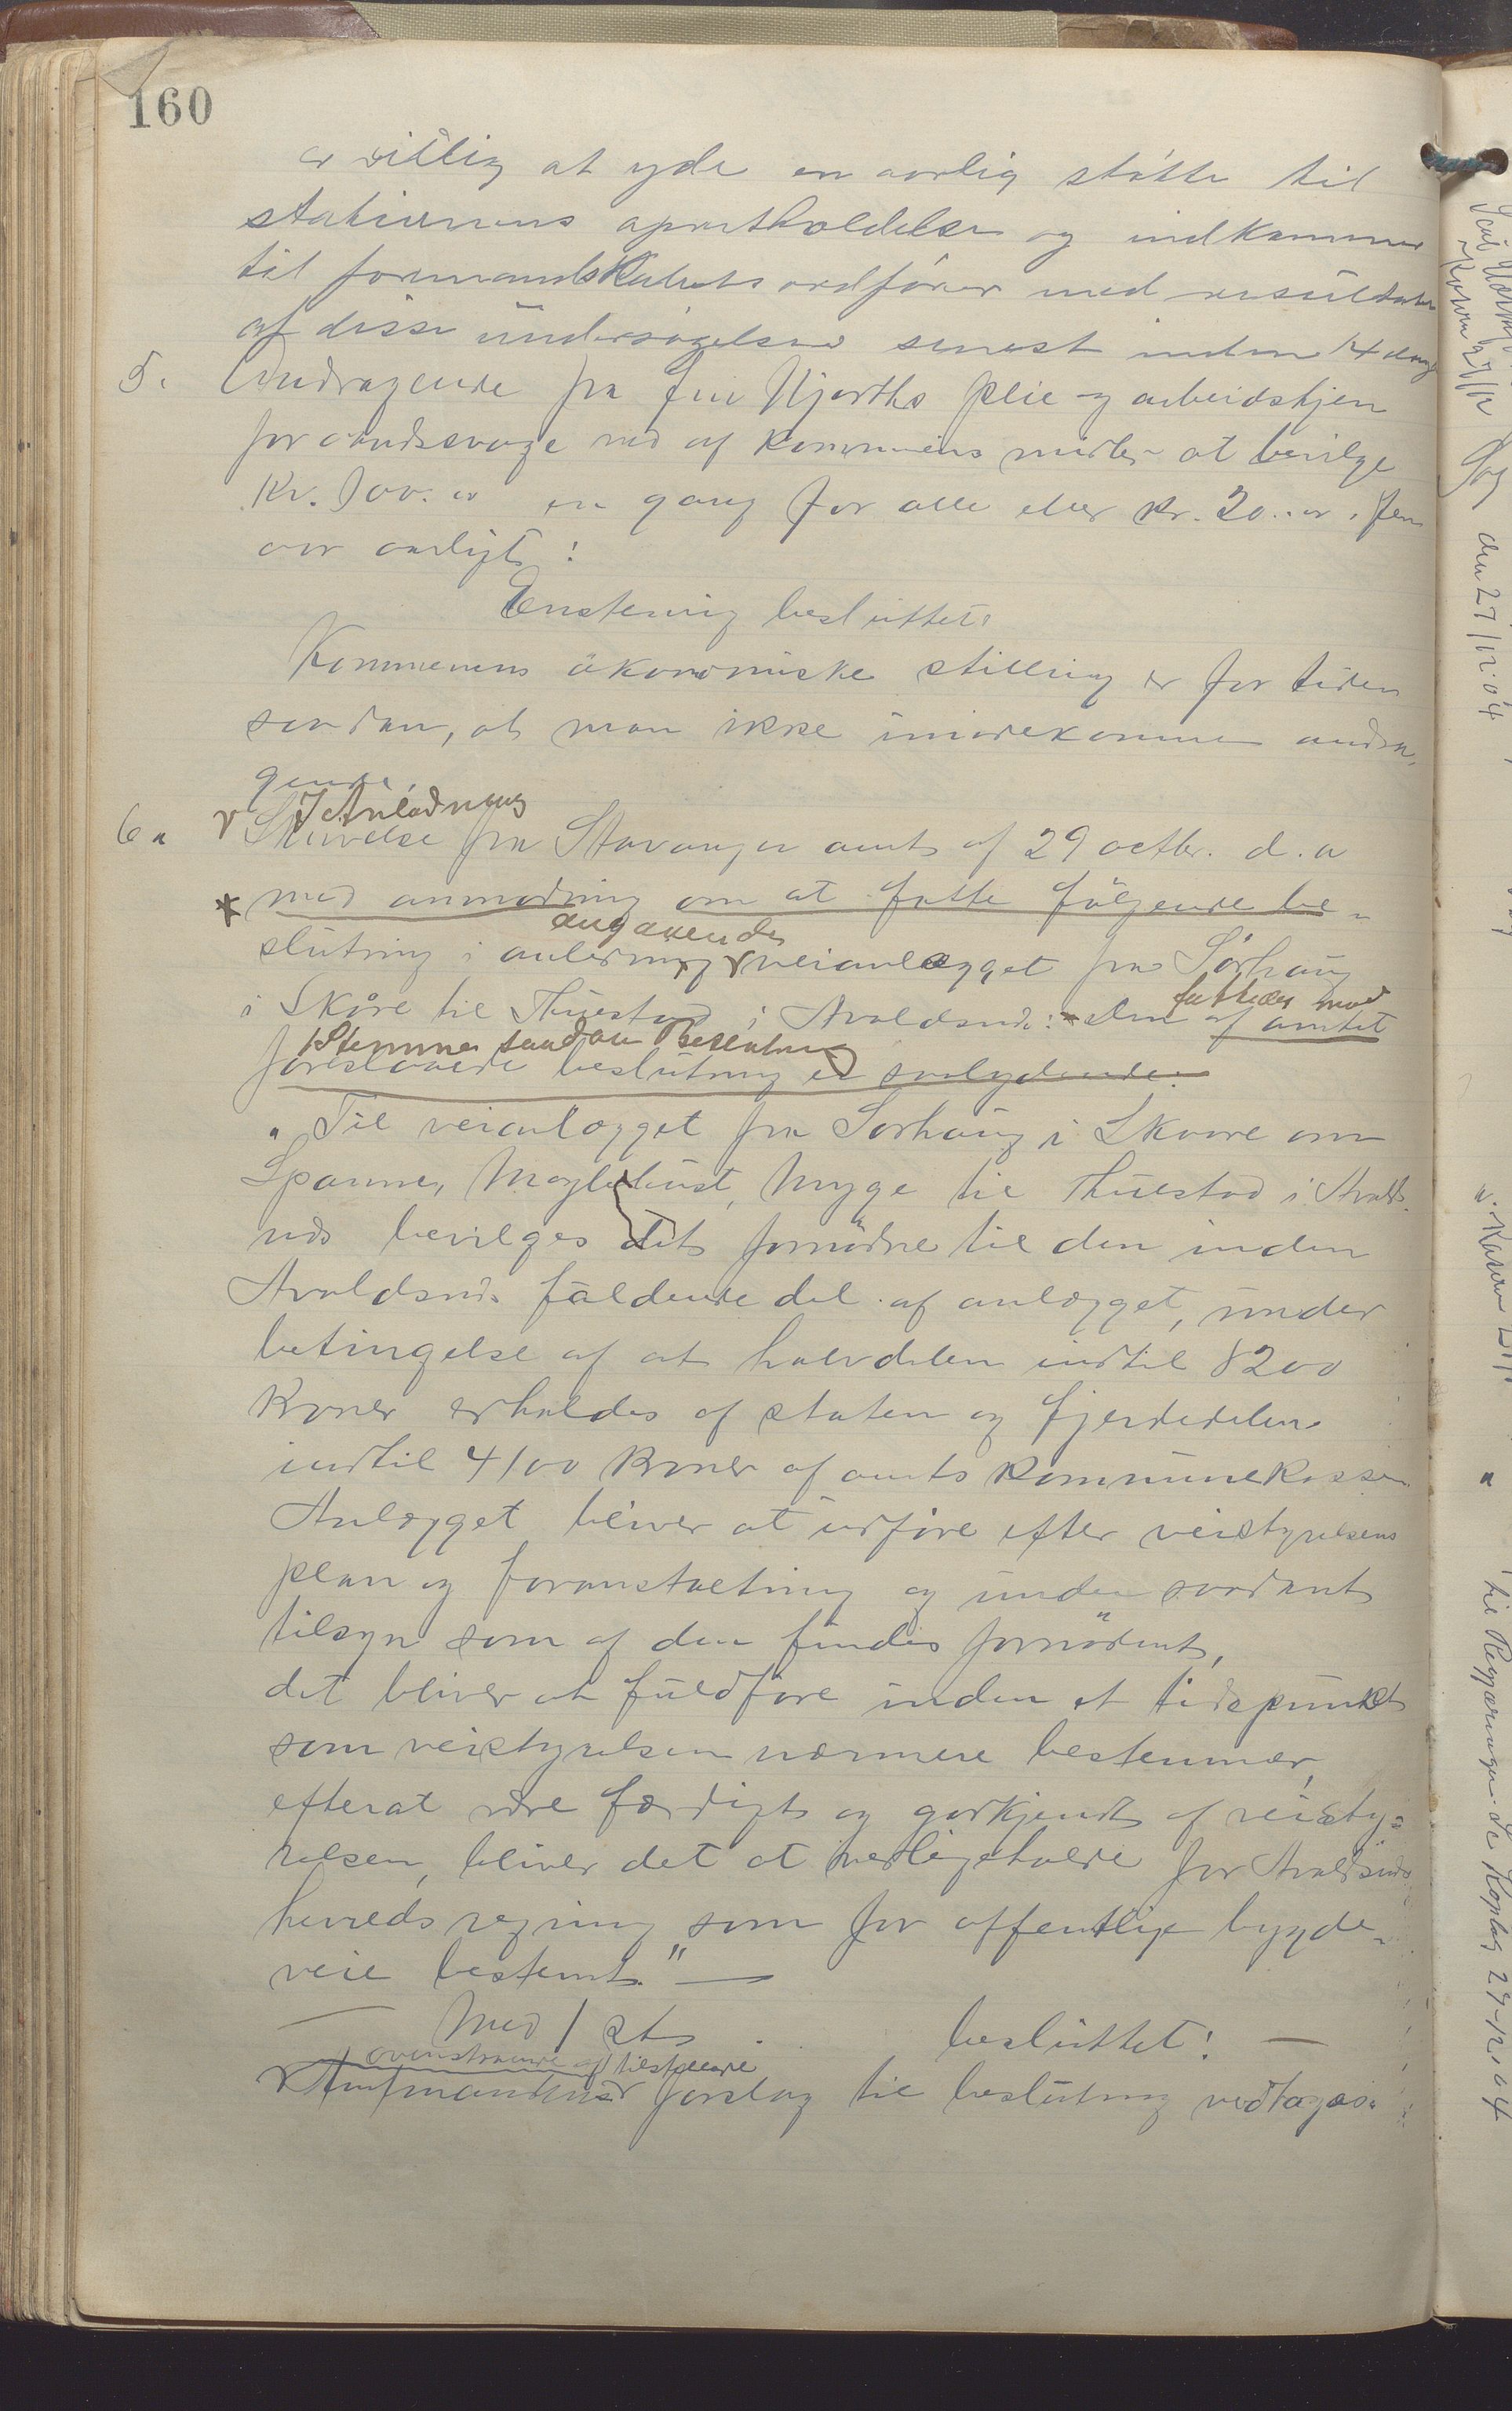 160
er villig at yde en aarlig støtte til
stationens opretholdelse og indkommer
til formandskabets ordfører med resultatet
af disse undersøgelser senest inden 14 dage
5. Andragende fra fru Hjorths pleie og arbeidshjem
for aandssvage ved af kommunens midler at bevilge
Kr. 100.00 en gang for alle eller kr. 20.00 i fem
aar aarligt:
Enstemmig besluttet:
Kommunens økonomiske stilling er for tiden
saadan, at man ikke imødekommer andra-
gende.
I Anledning
6. Skrivelse fra Stavanger amt af 29 octbr. d.a
med anmodning om at fatte følgende be-
angaaende
slutning i anledning veianlægget fra Sørhaug
i Skåre til Thuestad i Avaldsnes: den af amtet
fattedes mod
1 Stemme saadan Beslutning
foreslaaede beslutning er saalydende:
"Til veianlægget fra Sørhaug i Skaare om
Spanne, Moglebust, Mygge til Thuestad i Avalds-
nes bevilges det fornødne til den inden
Avaldsnes faldende del af anlægget, under
betingelse af at halvdelen indtil 8200
Kroner erholdes af staten og fjerdedelen
indtil 4100 kroner af amtskommunekassen
Anlægget bliver at udføre efter veistyrelsens
plan og foranstaltning og under saadant
tilsyn som af den findes fornødent,
det bliver at fuldføre inden et tidspunkt
som veistyrelsen nærmere bestemmer,
efterat være færdigt og godkjendt af veisty-
relsen, bliver det at vedligeholde for Avaldsnes
herreds regning som for offentlige bygde-
veie bestemt." —
— Med 1 st. besluttet! —
ovenstaaende
Amtmandens forslag til beslutning vedtages.
den 27/12.04
til Regjæringen
27-12-04